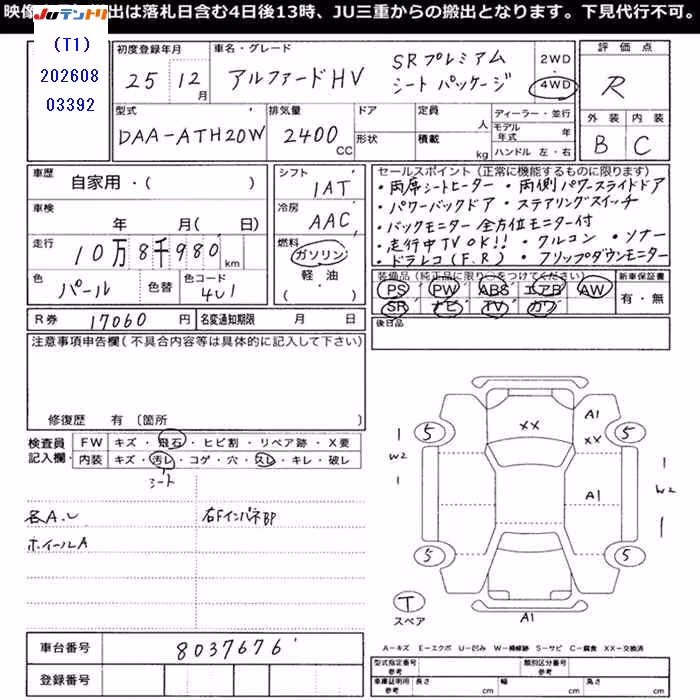 映像 出は落札日含む4日後13時、JU三重からの搬出となります。下見代行不可。
Juテントリ
(T1)
202608
03392
初度登録年月
25 12月
車名・グレード
アルファードHV SRプレミアム
シートパッケージ
2WD
4WD
評価点
R
外装 内装
B C
型式
DAA-ATH20W
排気量
2400 CC
ドア
形状
定員 人
積載 kg
ディーラー・並行
モデル年式 年
ハンドル 左・右
車歴
自家用・( )
車検
年 月( 日)
走行
10万8千980 km
色
パール
色替
色コード
4U1
シフト
IAT
冷房
AAC
燃料
ガソリン
軽・油
( )
セールスポイント(正常に機能するものに限ります)
・両席シートヒーター ・両側パワースライドドア
・パワーバックドア ・ステアリングスイッチ
・バックモニター 全方位モニター付
・走行中TV OK!! ・クルコン ・ソナー
・ドラレコ(F.R) ・フリップダウンモニター
装備品(純正品に限り○をつけてください)
PS PW ABS エアB AW
SR ナビ TV カワ
新車保証書
有・無
後日品
R券 17060円
名変通知期限 月 日
注意事項申告欄(不具合内容等は具体的に記入して下さい)
修復歴 有〔箇所 〕
検査員
記入欄
FW キズ・飛石・ヒビ割・リペア跡・X要
内装 キズ・汚レ・コゲ・穴・スレ・キレ・破レ
シート
各A.U
ホイールA
右FインパネBP
XX
A1
XX
A1
A1
5
5
5
5
1
W2
1
1
W2
1
T
スペア
車台番号 8037676
登録番号
A-キズ E-エクボ U-凹み W-補修跡 S-サビ C-腐食 XX-交換済
型式指定番号
参考
類別区分番号
参考
車庫証明用
参考
長さ cm 幅 cm 高さ cm